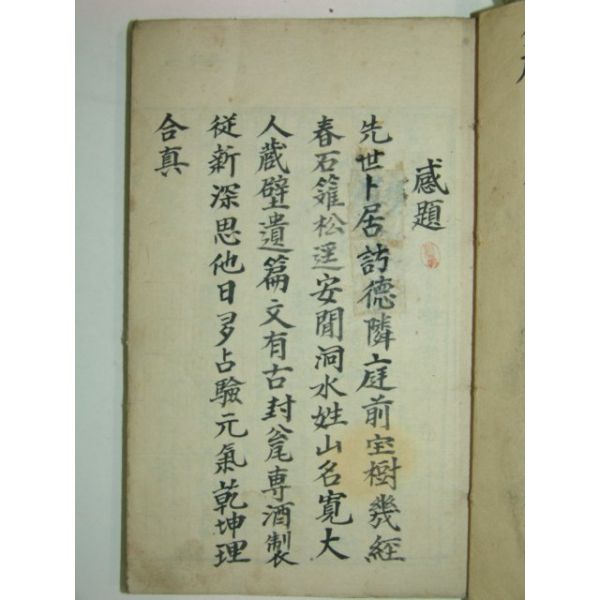 感題
先世卜居訪德隣庭前宝樹幾經
春石籬松逕安閒洞水姓山名寛大
人蔵壁遺篇文有古封瓮専酒製
從新深思他日多占驗元氣乾坤理
合真